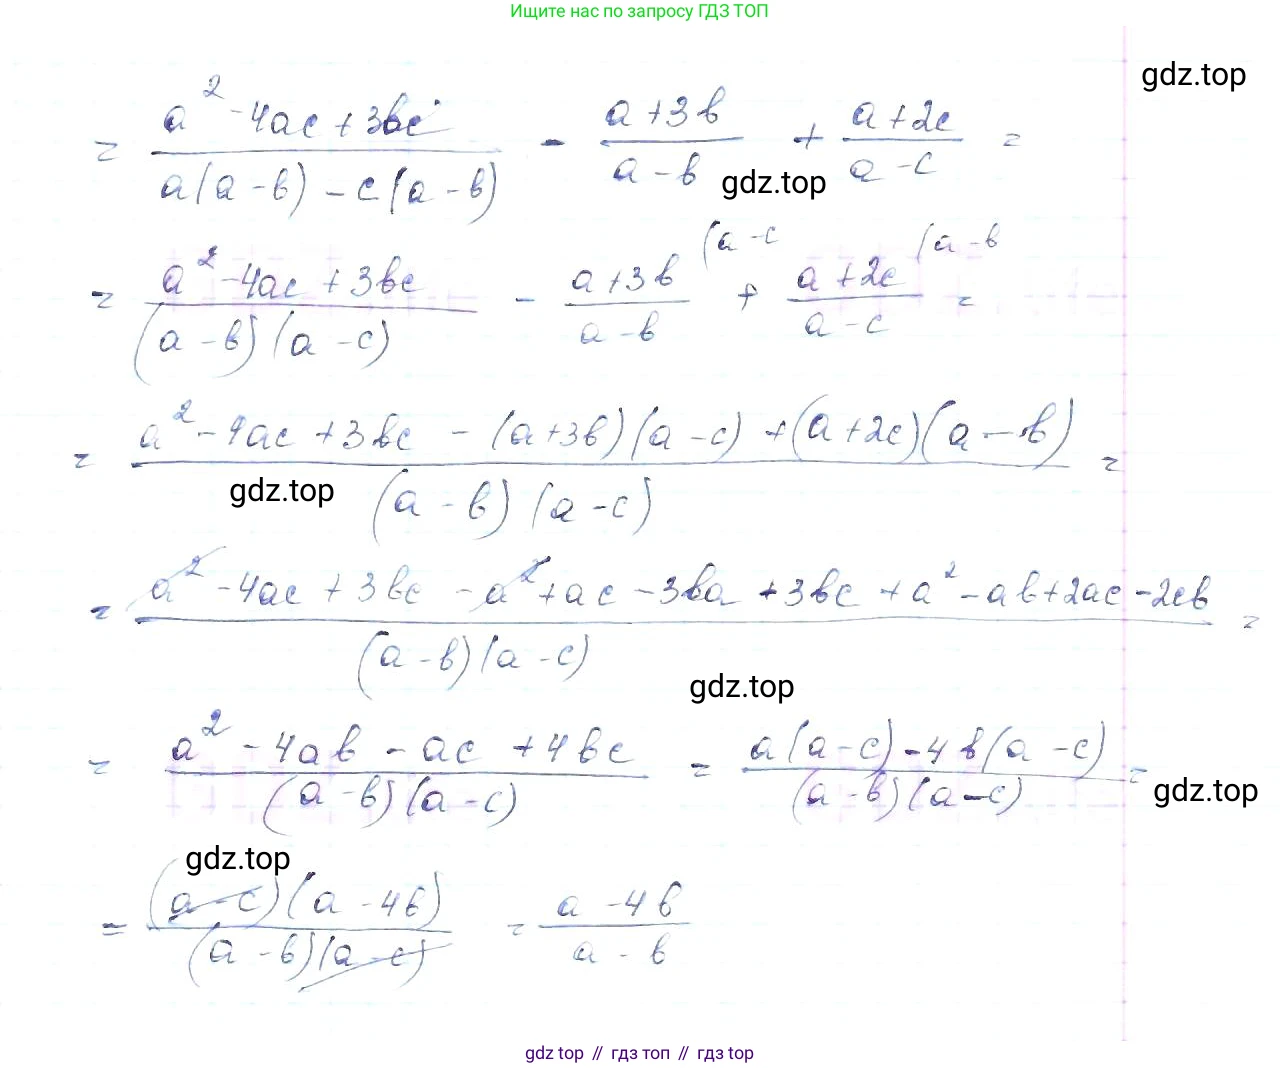 Ищите нас по запросу ГДЗ ТОП
gdz.top
= (a² - 4ac + 3bc) / (a(a - b) - c(a - b)) - (a + 3b) / (a - b) + (a + 2c) / (a - c) =
gdz.top
= (a² - 4ac + 3bc) / ((a - b)(a - c)) - (a + 3b) / (a - b) (a - c + (a + 2c) / (a - c) (a - b =
= (a² - 4ac + 3bc - (a + 3b)(a - c) + (a + 2c)(a - b)) / ((a - b)(a - c)) =
gdz.top
= (a² - 4ac + 3bc - a² + ac - 3ba + 3bc + a² - ab + 2ac - 2cb) / ((a - b)(a - c)) =
gdz.top
= (a² - 4ab - ac + 4bc) / ((a - b)(a - c)) = (a(a - c) - 4b(a - c)) / ((a - b)(a - c)) =
gdz.top
gdz.top
= ((a - c)(a - 4b)) / ((a - b)(a - c)) = (a - 4b) / (a - b)
gdz top // гдз топ // гдз top